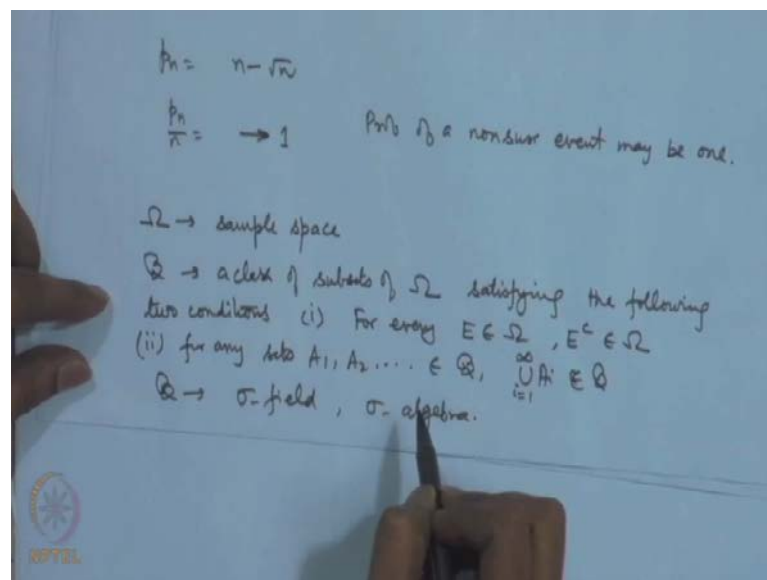 pn = n - √n
pn/n = → 1 Prob of a nonsure event may be one.
Ω → sample space
B → a class of subsets of Ω satisfying the following
two conditions (i) For every E ∈ Ω, E^c ∈ Ω
(ii) for any sets A1, A2 .... ∈ B, ∞∪i=1 Ai ∈ B
B → σ-field, σ-algebra.
NPTEL